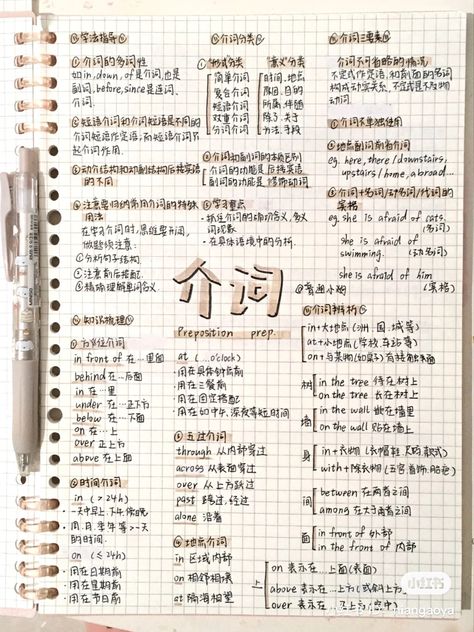 学法指导
① 介词的多词性
如in, down, of是介词,也是
副词,before, since是连词、
介词.
② 短语介词和介词短语是不同的
介词短语作定语,而短语介词只
起介词作用.
③ 动介结构和动副结构后接宾语
的不同
④ 注意要归纳常用介词的特殊
用法
在学习介词时,思维要开阔,
做题须注意:
① 分析句子结构.
② 注意前后搭配.
③ 精确理解单词含义.
知识梳理
① 方位介词
in front of 在…里面
behind 在…后面
in 在…里
under 在…正下方
below 在…下面
on 在…上
over 正上方
above 在…上面
② 时间介词
in (>24h)
·一天中早上.下午.傍晚
·周.月.学年等>一天
的时间.
on (≤24h)
·用在日期前
·用在星期前
·用在节日前
介词分类
形式分类
简单介词
复合介词
短语介词
双重介词
分词介词
意义分类
时间.地点
原因.目的
所属.伴随
除了.关于
方法.手段
② 介词和副词的本质区别
介词的功能是后接宾语
副词的功能是修饰动词
③ 学习重点
·抓住介词的动词含义,多义
词现象
·在具体语境中的分析.
介词
Preposition prep.
at (…o'clock)
·用在具体钟点前
·用在三餐前
·用在固定搭配
·用在如中午,深夜等短时间
③ 五过介词
through 从内部穿过
across 从表面穿过
over 从上方跃过
past 路过,经过
along 沿着
④ 地点介词
in 区域内部
on 相邻相接
at 隔海相望
介词三要素
介词不可省略的情况
不定式作定语,和前面的名词
构成动宾关系,不定式是不及物
动词.
① 介词不单独使用
② 地点副词前省介词
eg. here, there / downstairs,
upstairs / home, abroad…
③ 介词+名词/动名词/代词的
宾格
eg. she is afraid of cats.
(名词)
she is afraid of
swimming. (动名词)
she is afraid of him
(宾格)
介词辨析
in+大地点(洲.国.城等)
at+小地点(学校.车站等)
on+与某物(如桌子)有接触表面
树
in the tree 待在树上
on the tree 长在树上
墙
in the wall 嵌在墙里
on the wall 贴在墙上
身
in+衣物(衣帽鞋,尺码款式)
with+除衣物(五官首饰.胎疤)
间
between 在两者之间
among 在大于两者之间
面
in front of 外部
in the front of 内部
上
on 表示在…上面(表面)
above 表示在…上方(或斜上方)
over 表示在…正上方(空中)
小红书